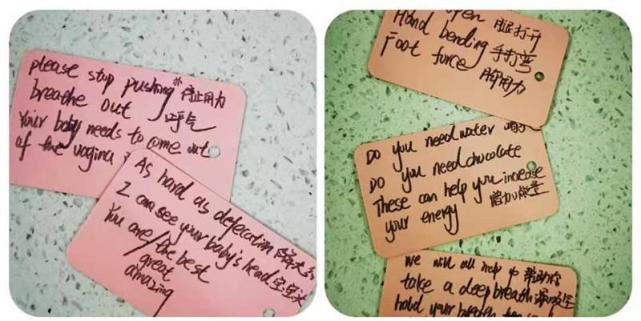 please stop pushing 停止用力
breathe out 呼气
Your baby needs to come out
of the vagina
As hard as defecation
I can see your baby's head
You are / the best
great
amazing
open 腿打开
Hand bending 手打弯
Foot force 脚用力
DO you need water
DO you need chocolate
These can help you increase
your energy 增加能量
We will all help
take a deep breath
hold your breath